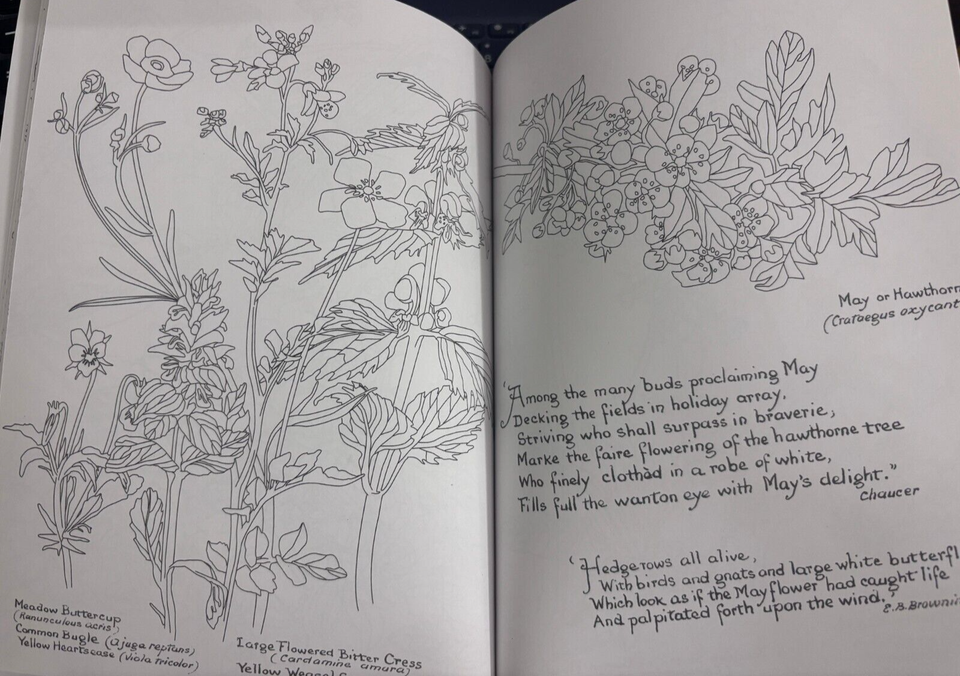 Meadow Buttercup
(Ranunculous acris)
Common Bugle (ajuga reptans)
Yellow Heartsease (Viola tricolor)
Large Flowered Bitter Cress
(Cardamine amara)
Yellow
May or Hawthorn
(Crataegus oxycant
'Among the many buds proclaiming May
Decking the fields in holiday array,
Striving who shall surpass in braverie,
Marke the faire flowering of the hawthorne tree
Who finely clothàd in a robe of white,
Fills full the wanton eye with May's delight."
Chaucer
'Hedgerows all alive,
With birds and gnats and large white butterfl
Which look as if the Mayflower had caught life
And palpitated forth upon the wind.'
E.B.Browni